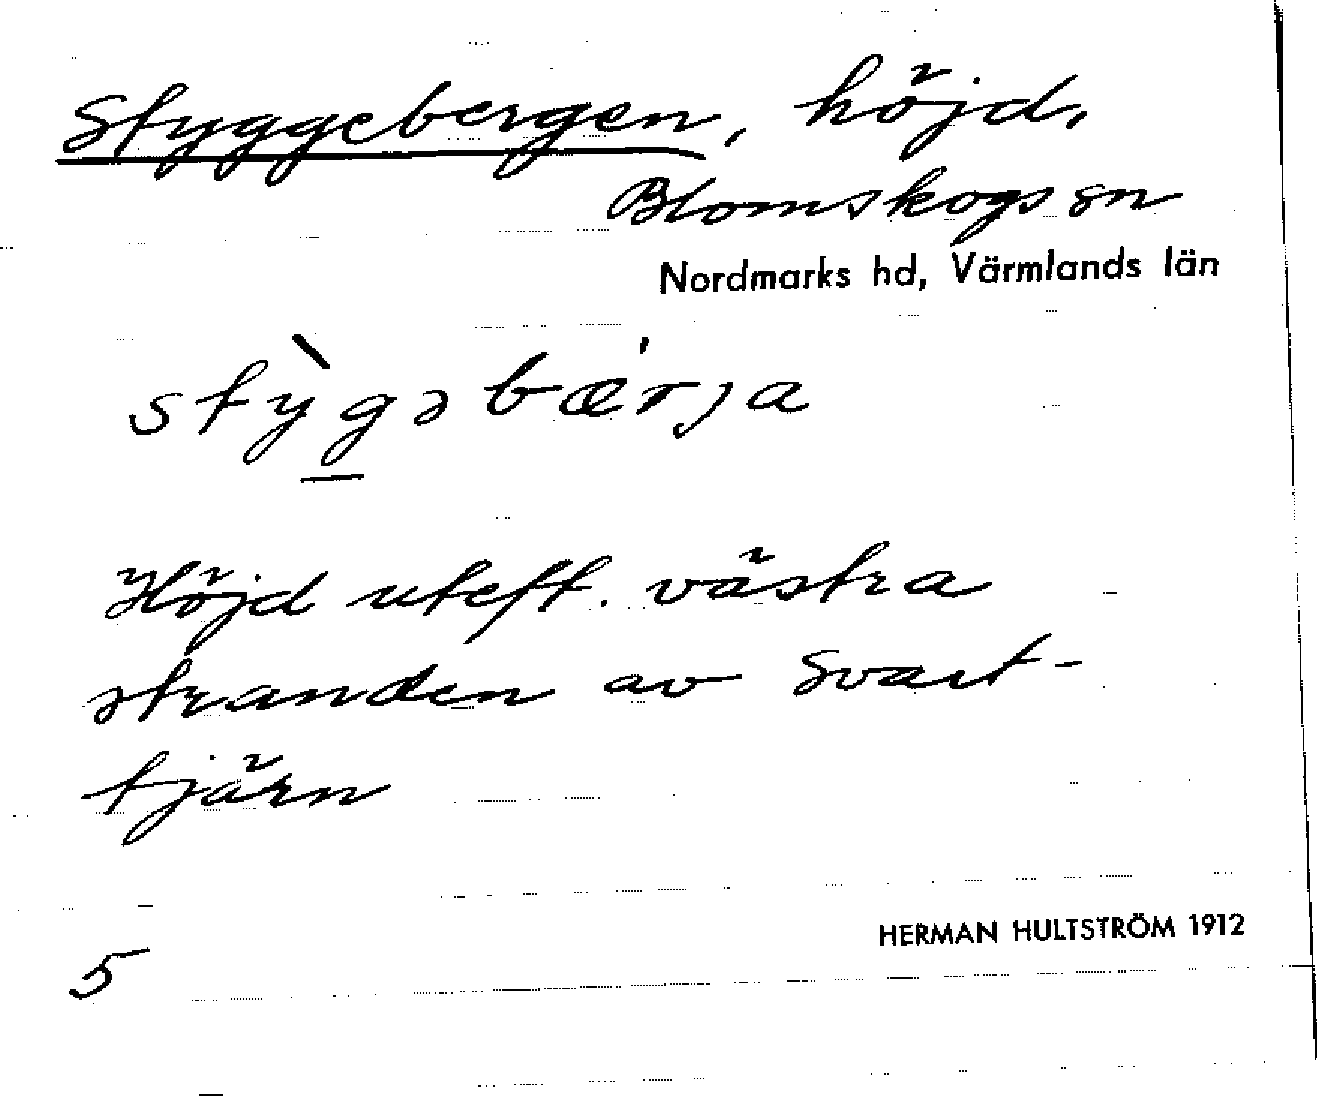 Styggebergen, höjd,
Blomskogs sn
Nordmarks hd, Värmlands län
stỳgəbærja
Höjd uteft. västra
stranden av Svart-
tjärn
5
HERMAN HULTSTRÖM 1912